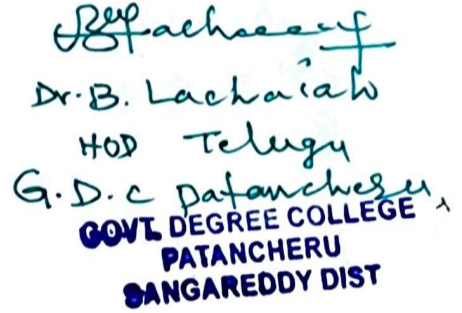 Dr. B. Lachaiah
HOD Telugu
G.D.C Patancheru,
GOVT. DEGREE COLLEGE
PATANCHERU
SANGAREDDY DIST